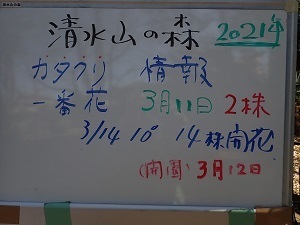 清水山の森 2021年
カタクリ 情報
一番花 3月11日 2株
3/14 10° 14株開花
(開園) 3月12日